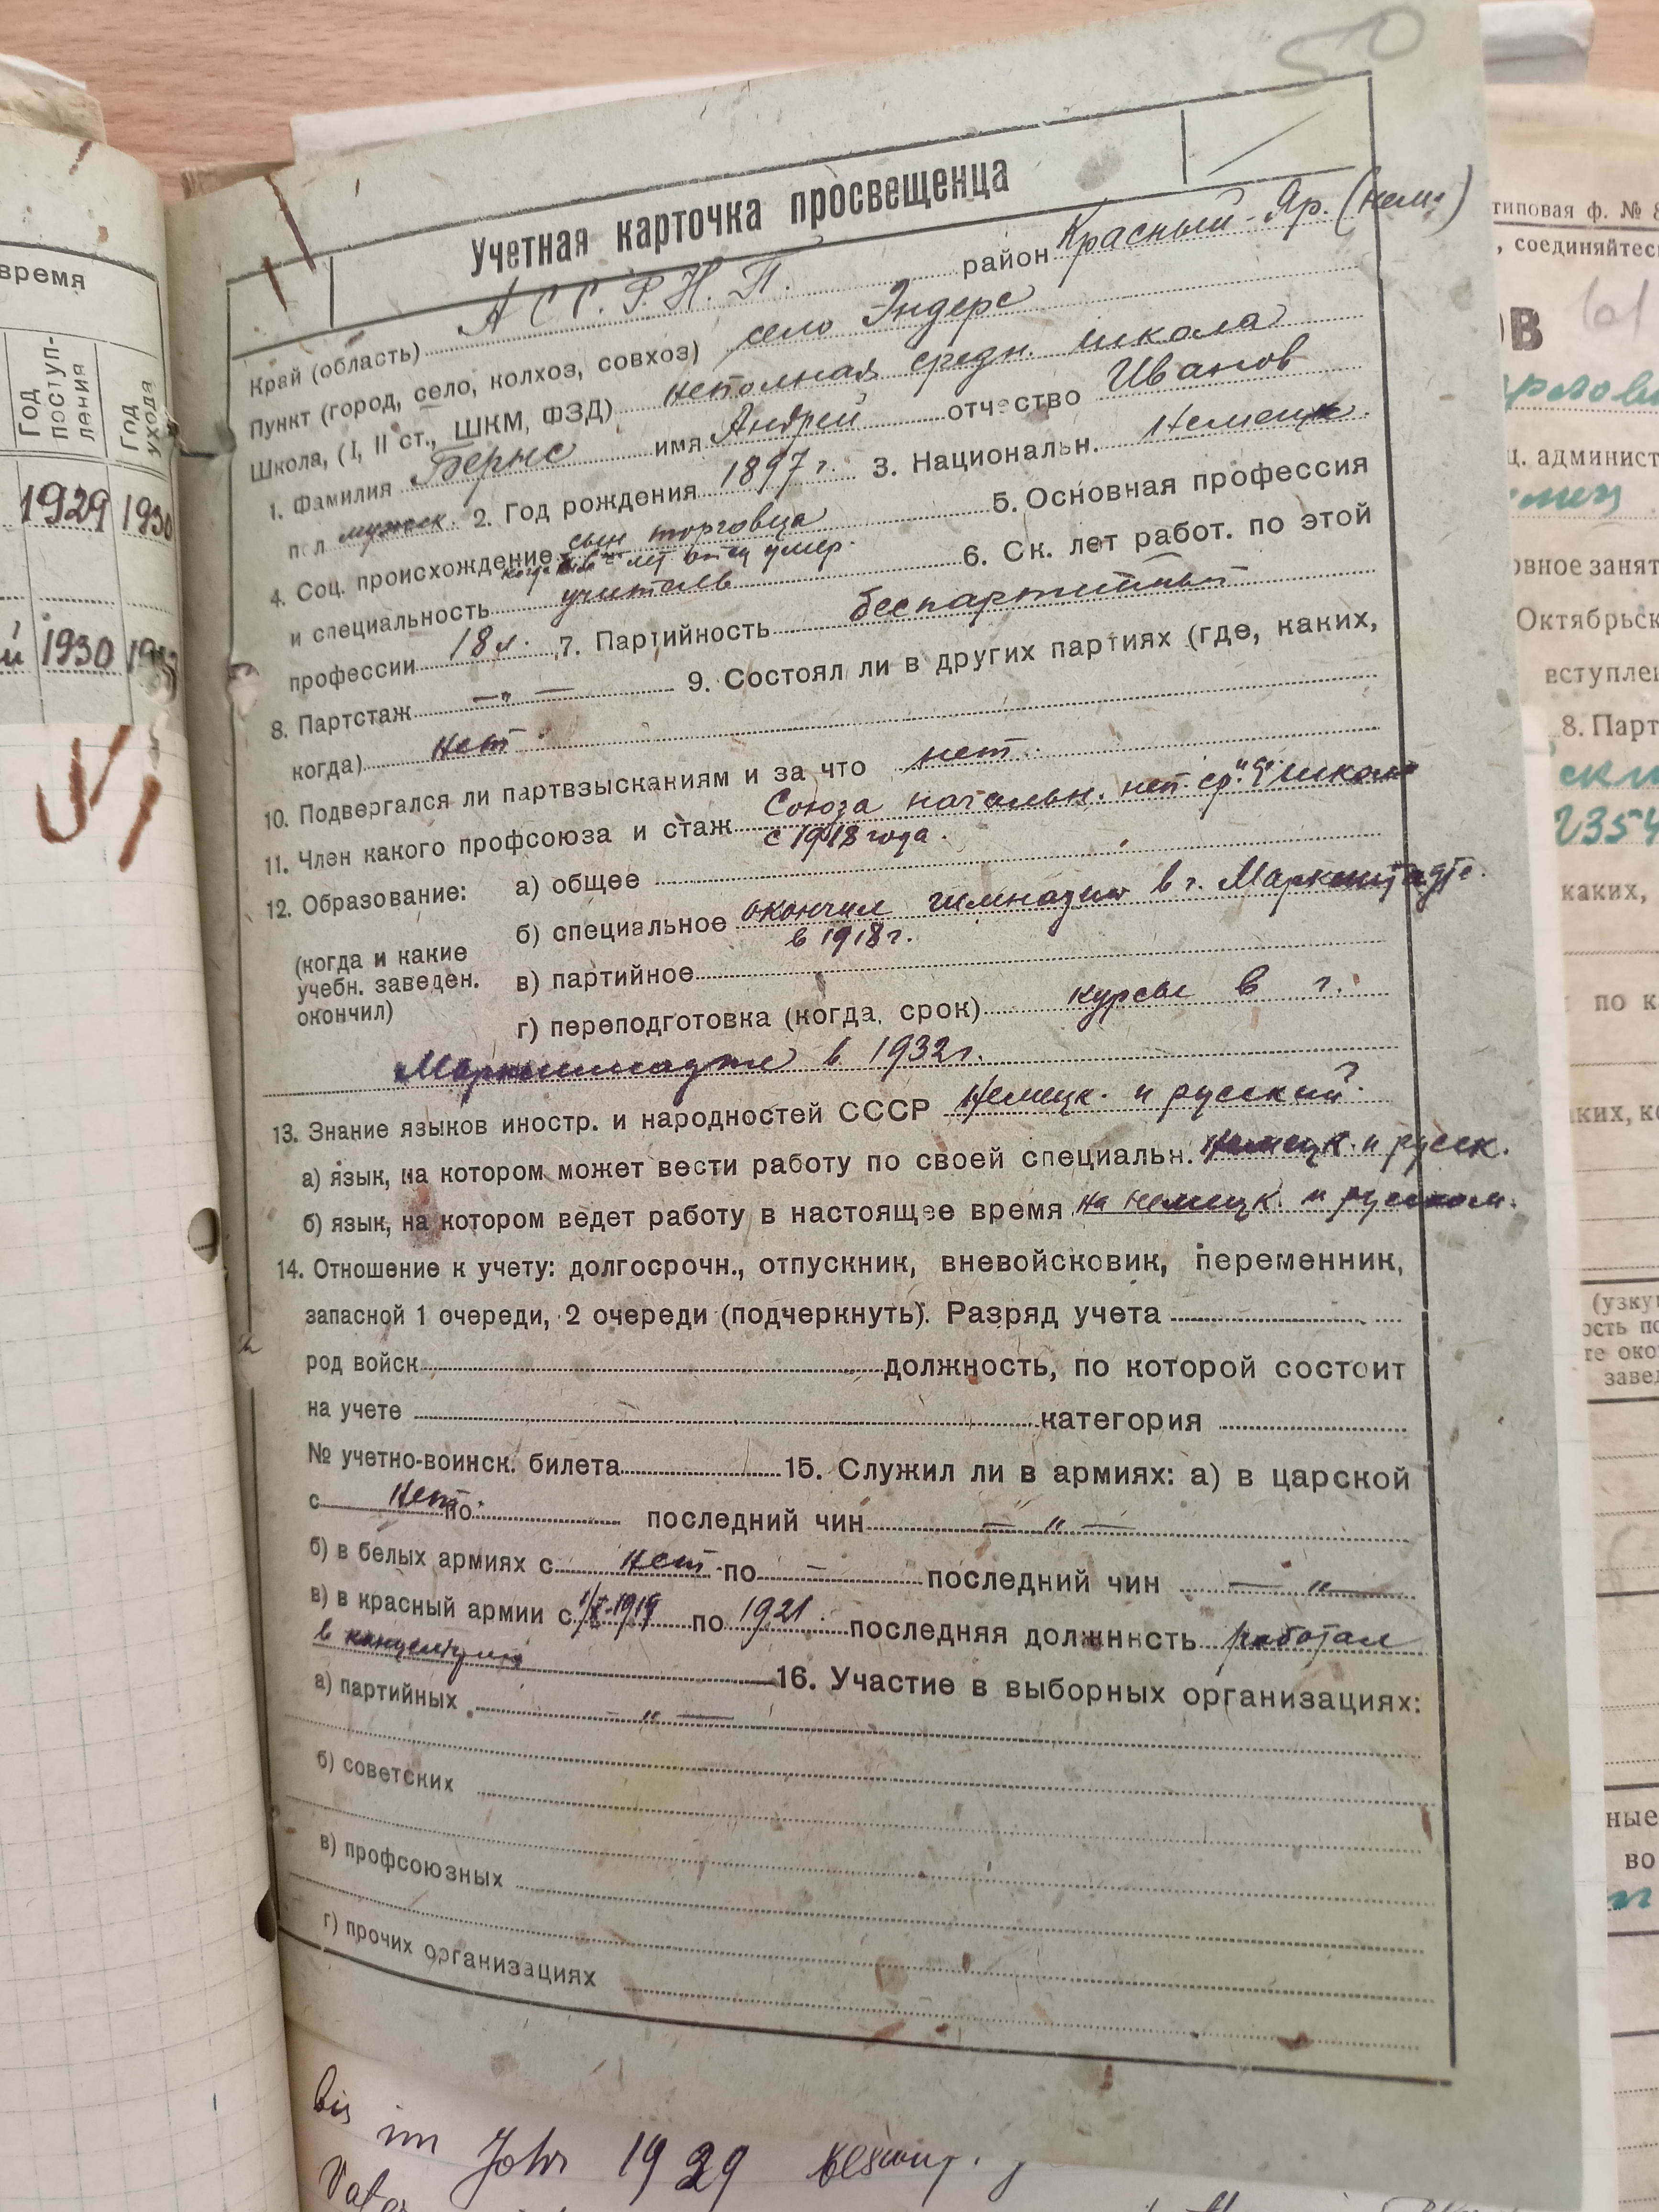 50
Учетная карточка просвещенца
Край (область) АССР.Н.П. район Красный-Яр. (нем.)
Пункт (город, село, колхоз, совхоз) село Эндерс
Школа, (I, II ст., ШКМ, ФЗД) неполная средн. школа
1. Фамилия Бернс имя Андрей отчество Иванов
пол мужск. 2. Год рождения 1897 г. 3. Национальн. Немецк.
4. Соц. происхождение сын торговца 5. Основная профессия
лет отец умер.
и специальность учитель 6. Ск. лет работ. по этой
профессии 18 л. 7. Партийность беспартийный
8. Партстаж —"— 9. Состоял ли в других партиях (где, каких,
когда) нет.
10. Подвергался ли партвзысканиям и за что нет.
11. Член какого профсоюза и стаж Союза начальн. неп. ср. школ
с 1918 года.
12. Образование: а) общее
(когда и какие учебн. заведен. окончил)
б) специальное окончил гимназию в г. Марксштадте.
в 1918 г.
в) партийное
г) переподготовка (когда, срок) курсы в г.
Марксштадте в 1932 г.
13. Знание языков иностр. и народностей СССР Немецк. и русский.
а) язык, на котором может вести работу по своей специальн. Немецк. и русск.
б) язык, на котором ведет работу в настоящее время на немецк. и русском.
14. Отношение к учету: долгосрочн., отпускник, вневойсковик, переменник,
запасной 1 очереди, 2 очереди (подчеркнуть). Разряд учета
род войск должность, по которой состоит
на учете категория
№ учетно-воинск. билета 15. Служил ли в армиях: а) в царской
с Нет. по последний чин —"—
б) в белых армиях с нет по — последний чин —"—
в) в красный армии с 1919 по 1921. последняя должность работал
в канцелярии 16. Участие в выборных организациях:
а) партийных —"—
б) советских
в) профсоюзных
г) прочих организациях
bis
im Jahr 1929
время
Год поступ-ления
Год ухода
1929 1930
й 1930
типовая ф. № 8
, соединяйтесь
61
ОВ
ц. админист
овное занят
Октябрьск
вступлен
8. Парт
2354
каких,
по к
ких, ко
(узку
ость по
те око
завед
ные
во